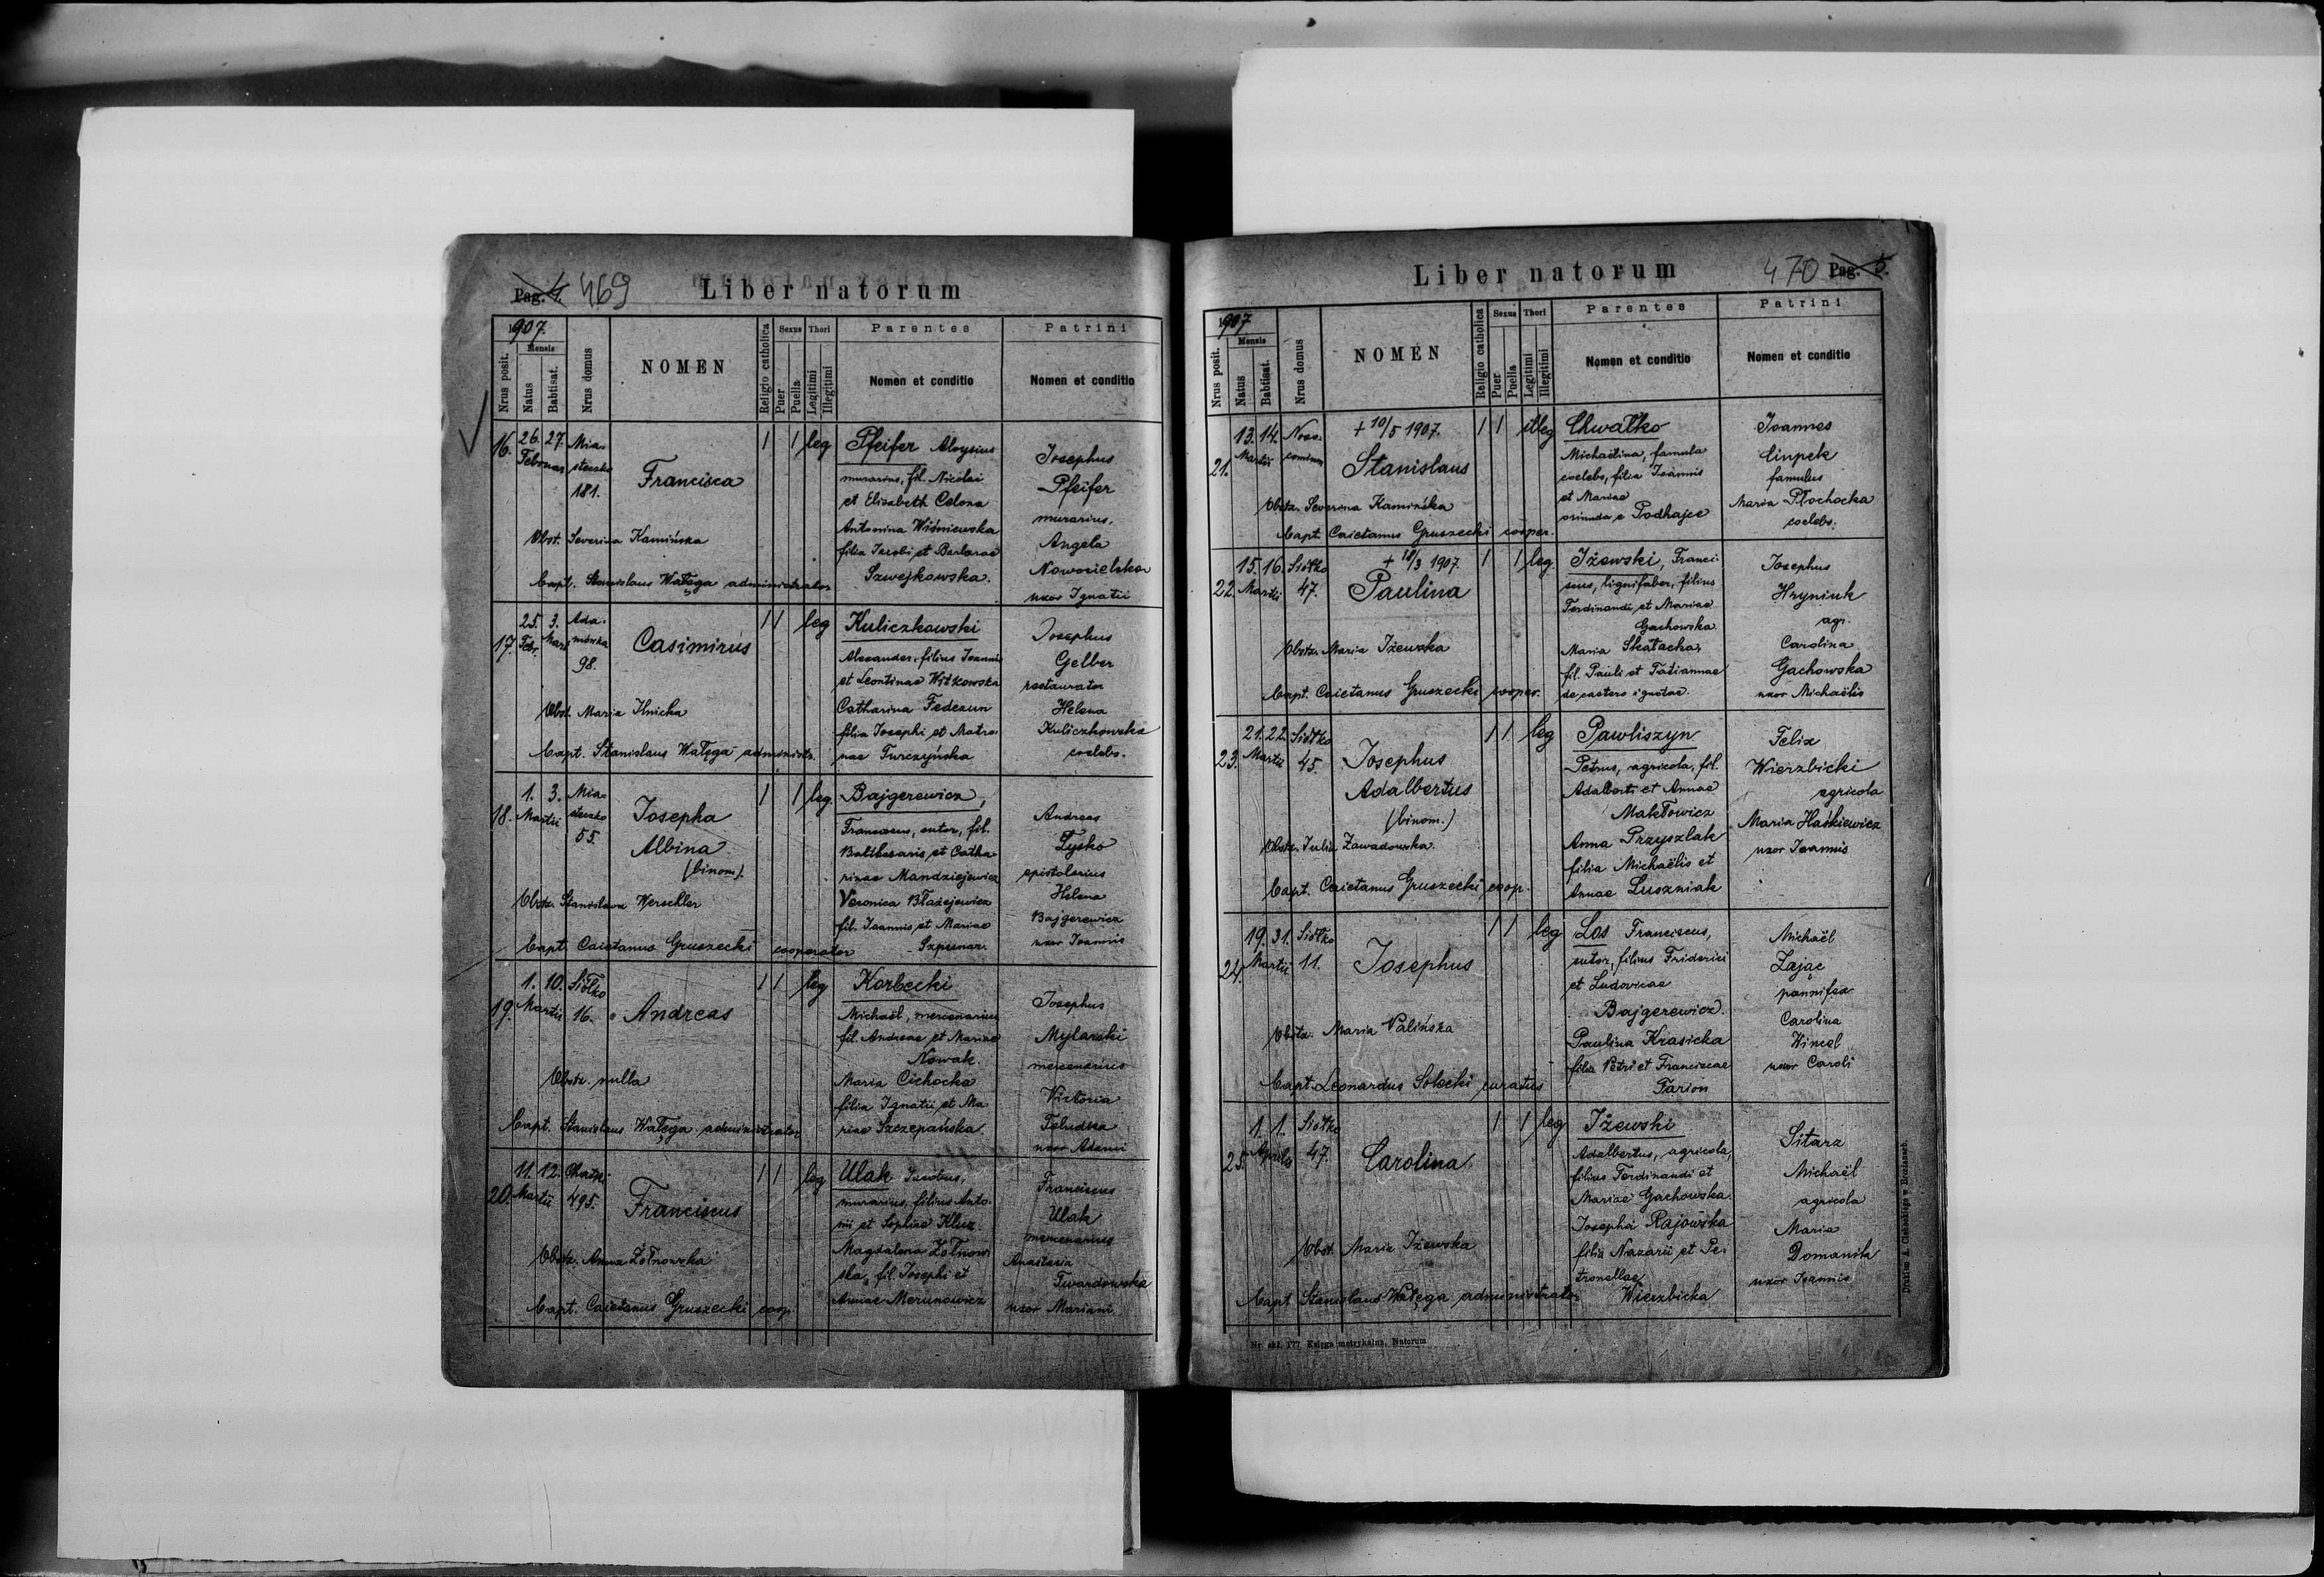 Pag. 4. 469
Liber natorum
1907.
Mensis
Nrus posit.
Natus
Babtisat.
Nrus domus
NOMEN
Religio catholica
Sexus
Puer
Puella
Thori
Legitimi
Illegitimi
Parentes
Nomen et conditio
Patrini
Nomen et conditio
16. 26. 27. Mia-
Februar steczko
181.
Francisca
1 1 leg
Pfeifer Aloysius
murarius, fil. Nicolai
et Elisabeth Celona
Antonina Wiśniewska
filia Jacobi et Barbarae
Szwejkowska.
Josephus
Pfeifer
murarius.
Angela
Nowosielska
uxor Ignatii
Obst. Severina Kamińska
Bapt. Stanislaus Wałęga administrator
17. 25. 3. Ada-
Febr. Mart mówka
98.
Casimirus
1 1 leg
Kuliczkowski
Alexander, filius Joannis
et Leontinae Witkowska
Catharina Fedczun
filia Josephi et Matro-
nae Turczyńska
Josephus
Gelber
restaurator
Helena
Kuliczkowska
coelebs.
Obst. Maria Ilnicka
Bapt. Stanislaus Wałęga administr.
18. 1. 3. Mia-
Martii steczko
55.
Josepha
Albina
(binom).
1 1 leg.
Bajgerewicz,
Franciscus, sutor, fil.
Balthasaris et Catha-
rinae Mandziejewicz
Veronica Błażejewicz
fil. Joannis et Mariae
Szpunar.
Andreas
Tysko
epistolarius
Helena
Bajgerewicz
uxor Joannis
Obstr. Stanislawa Werschler
Bapt. Caietanus Gruszecki cooperator
19. 1. 10. Siółko
Martii 16.
Andreas
1 1 leg
Korbecki
Michaël, mercenarius
fil. Andreae et Mariae
Nowak
Maria Cichocka
filia Ignatii et Ma-
riae Szczepańska.
Josephus
Mylarski
mercenarius
Victoria
uxor Adami
Obstr. nulla
Bapt. Stanislaus Wałęga administrator
20. 11. 12.
Martii 495.
Franciscus
1 1 leg
Ulak Jacobus,
murarius, filius Anto-
nii et Sophiae Klus.
Magdalena Żołnow-
ska, fil. Josephi et
Annae Merunowicz
Franciscus
Ulak
mercenarius
Anastasia
Twardowska
uxor Mariani
Obstr. Anna Żołnowska
Bapt. Caietanus Gruszecki coop.
Liber natorum
470 Pag. 5.
1907
Mensis
Nrus posit.
Natus
Babtisat.
Nrus domus
NOMEN
Religio catholica
Sexus
Puer
Puella
Thori
Legitimi
Illegitimi
Parentes
Nomen et conditio
Patrini
Nomen et conditio
21. 13. 14. Noso-
Martii comium
+ 10/5 1907.
Stanislaus
1 1 illeg
Chwałko
Michaëlina, famula
coelebs, filia Joannis
et Mariae
oriunda e Podhajce
Joannes
Cinpek
famulus
Maria Płochocka
coelebs.
Obstr. Severina Kamińska
Bapt. Caietanus Gruszecki cooper.
22. 15. 16. Siółko
Martii 47.
+ 18/3 1907.
Paulina
1 1 leg.
Iżewski, Franci-
scus, lignifaber, filius
Ferdinandi et Mariae
Gachowska.
Maria Skałacka,
fil. Pauli et Tatiannae
de caetero ignotae.
Josephus
Hryniuk
agr.
Carolina
Gachowska
uxor Michaëlis
Obstr. Maria Iżewska
Bapt. Caietanus Gruszecki cooper.
23. 21. 22. Siółko
Martii 45.
Josephus
Adalbertus
(binom.)
1 1 leg
Pawliszyn
Petrus, agricola, fil.
Adalberti et Annae
Makłowicz
Anna Przyszlak
filia Michaëlis et
Annae Luszniak
Felix
Wierzbicki
agricola
Maria Haśkiewicz
uxor Joannis
Obstr. Julia Zawadowska.
Bapt. Caietanus Gruszecki, coop.
24. 19. 31. Siółko
Martii 11.
Josephus
1 1 leg
Los Franciscus,
sutor, filius Friderici
et Ludovicae
Bajgerewicz.
Paulina Krasicka
filia Petri et Franciscae
Farion
Michaël
Zając
pannifex
Carolina
Wincel
uxor Caroli
Obstr. Maria Palińska
Bapt. Leonardus Solecki curatus
25. 1. 1. Siółko
Aprilis 47.
Carolina
1 1 leg
Iżewski
Adalbertus, agricola,
filius Ferdinandi et
Mariae Gachowska.
Josepha Rajowska
filia Nazarii et Pe-
tronellae
Wierzbicka
Sitarz
Michaël
agricola
Maria
Domanik
uxor Joannis
Obst. Maria Iżewska
Bapt. Stanislaus Wałęga administrator
Nr. skł. 177 Księga metrykalna. Natorum